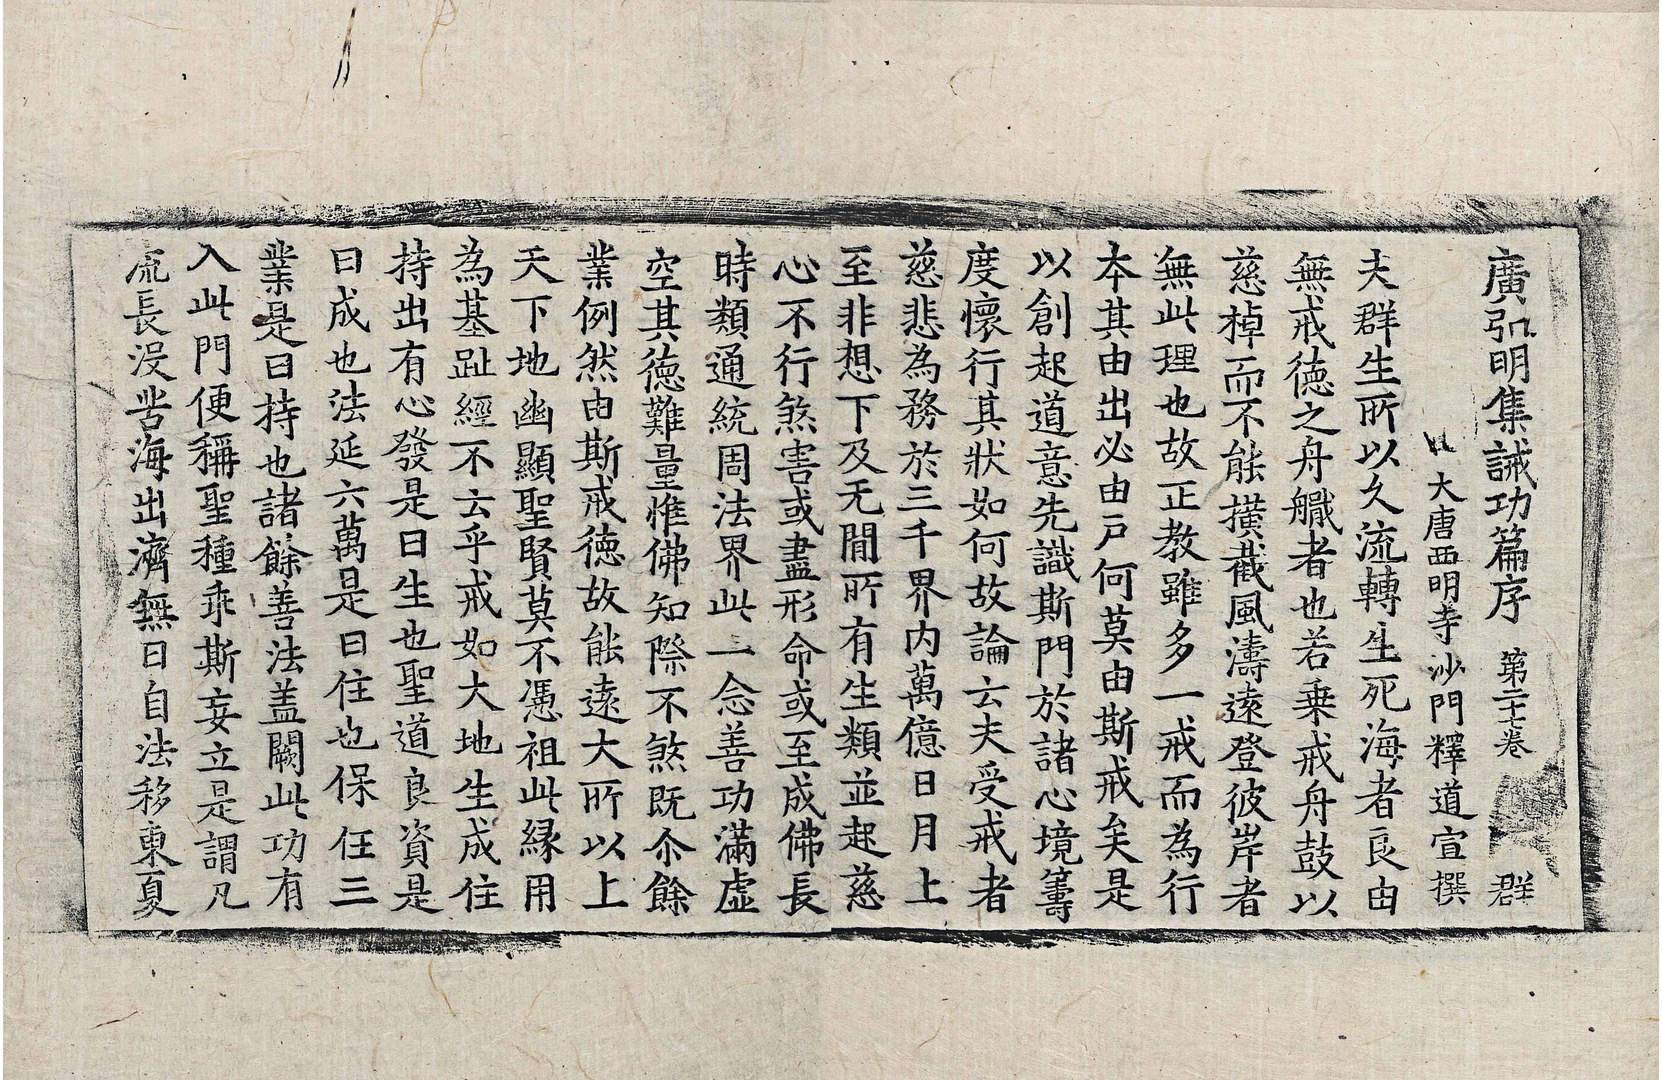 廣弘明集誡功篇序 第二十七卷 群
大唐西明寺沙門釋道宣撰
夫群生所以久流轉生死海者良由
無戒徳之舟艥者也若乗戒舟鼓以
慈棹而不能横截風濤遠登彼岸者
無此理也故正教雖多一戒而為行
本其由出必由戸何莫由斯戒矣是
以創起道意先識斯門於諸心境籌
度懷行其狀如何故論云夫受戒者
慈悲為務於三千界内萬億日月上
至非想下及无間所有生類並起慈
心不行煞害或盡形命或至成佛長
時類通統周法界此一念善功滿虚
空其徳難量惟佛知際不煞既尒餘
業例然由斯戒徳故能遠大所以上
天下地幽顯聖賢莫不憑祖此縁用
為基趾經不云乎戒如大地生成住
持出有心發是曰生也聖道良資是
曰成也法延六萬是曰住也保任三
業是曰持也諸餘善法盖闕此功有
入此門便稱聖種乖斯妄立是謂凡
流長没苦海出濟無日自法移東夏